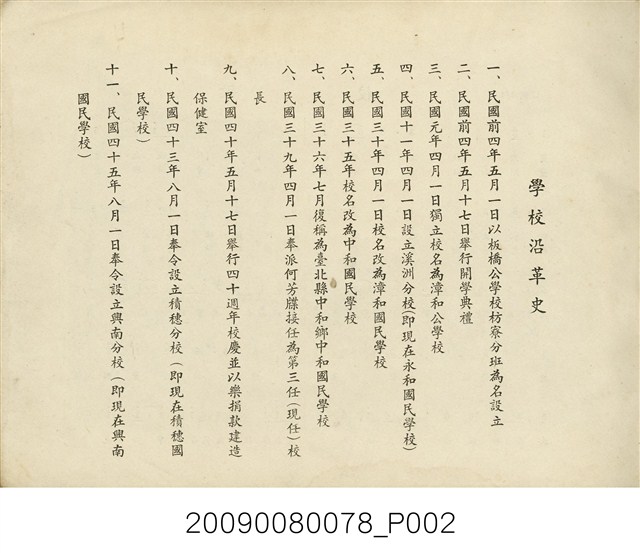 學校沿革史
一、民國前四年五月一日以板橋公學校枋寮分班為名設立
二、民國前四年五月十七日舉行開學典禮
三、民國元年四月一日獨立校名為漳和公學校
四、民國十一年四月一日設立溪洲分校(即現在永和國民學校)
五、民國三十年四月一日校名改為漳和國民學校
六、民國三十五年校名改為中和國民學校
七、民國三十六年七月復稱為臺北縣中和鄉中和國民學校
八、民國三十九年四月一日奉派何芳牒接任為第三任(現任)校
長
九、民國四十年五月十七日舉行四十週年校慶並以樂捐款建造
保健室
十、民國四十三年八月一日奉令設立積穗分校(即現在積穗國
民學校)
十一、民國四十五年八月一日奉令設立興南分校(即現在興南
國民學校)
20090080078_P002